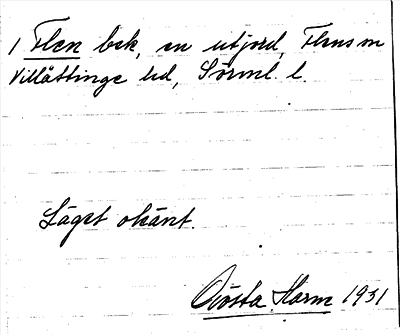 1 Flen bek, en utjord, Flens sn
Villåttinge hd, Sörml. l.
Läget okänt.
Gösta Harm 1931